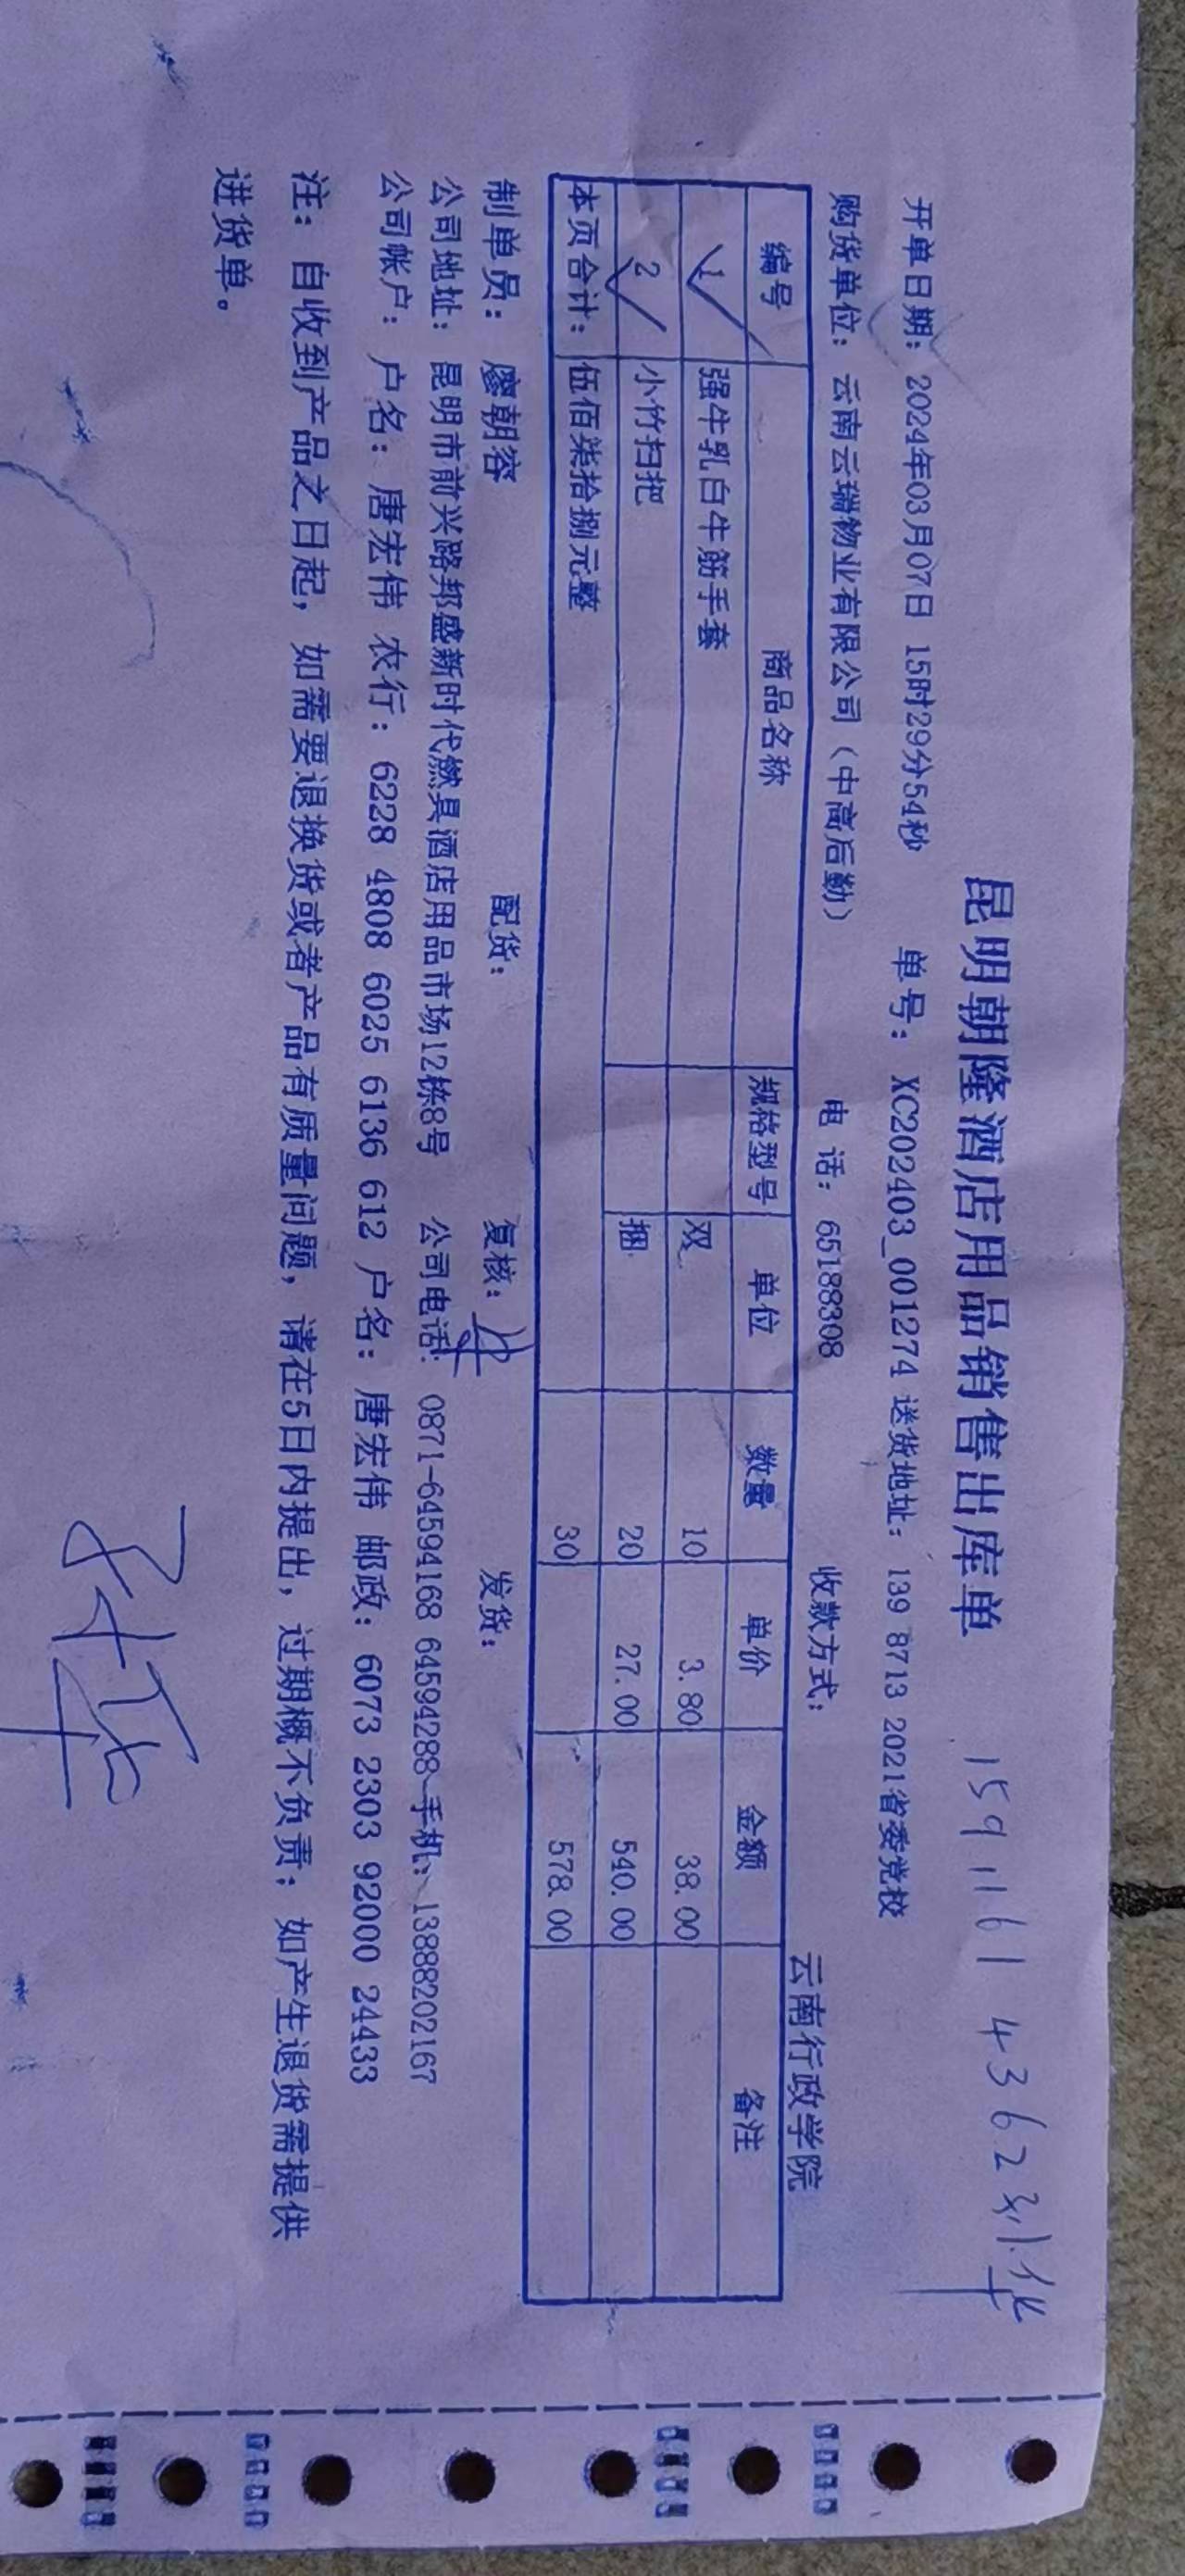 昆明朝隆酒店用品销售出库单 159 1161 4362
开单日期：2024年03月07日 15时29分54秒 单号：XC202403_001274 送货地址：139 8713 2021省委党校
购货单位：云南云瑞物业有限公司（中高后勤） 电 话：65188308 收款方式： 云南行政学院
编号 商品名称 规格型号 单位 数量 单价 金额 备注
1 强牛乳白牛筋手套 双 10 3.80 38.00
2 小竹扫把 捆 20 27.00 540.00
本页合计：伍佰柒拾捌元整 30 578.00
制单员：廖朝容 配货： 复核： 发货：
公司地址：昆明市前兴路邦盛新时代燃具酒店用品市场12栋8号 公司电话：0871-64594168 64594288 手机：13888202167
公司帐户：户名：唐宏伟 农行：6228 4808 6025 6136 612 户名：唐宏伟 邮政：6073 2303 92000 24433
注：自收到产品之日起，如需要退换货或者产品有质量问题，请在5日内提出，过期概不负责；如产生退货需提供
进货单。